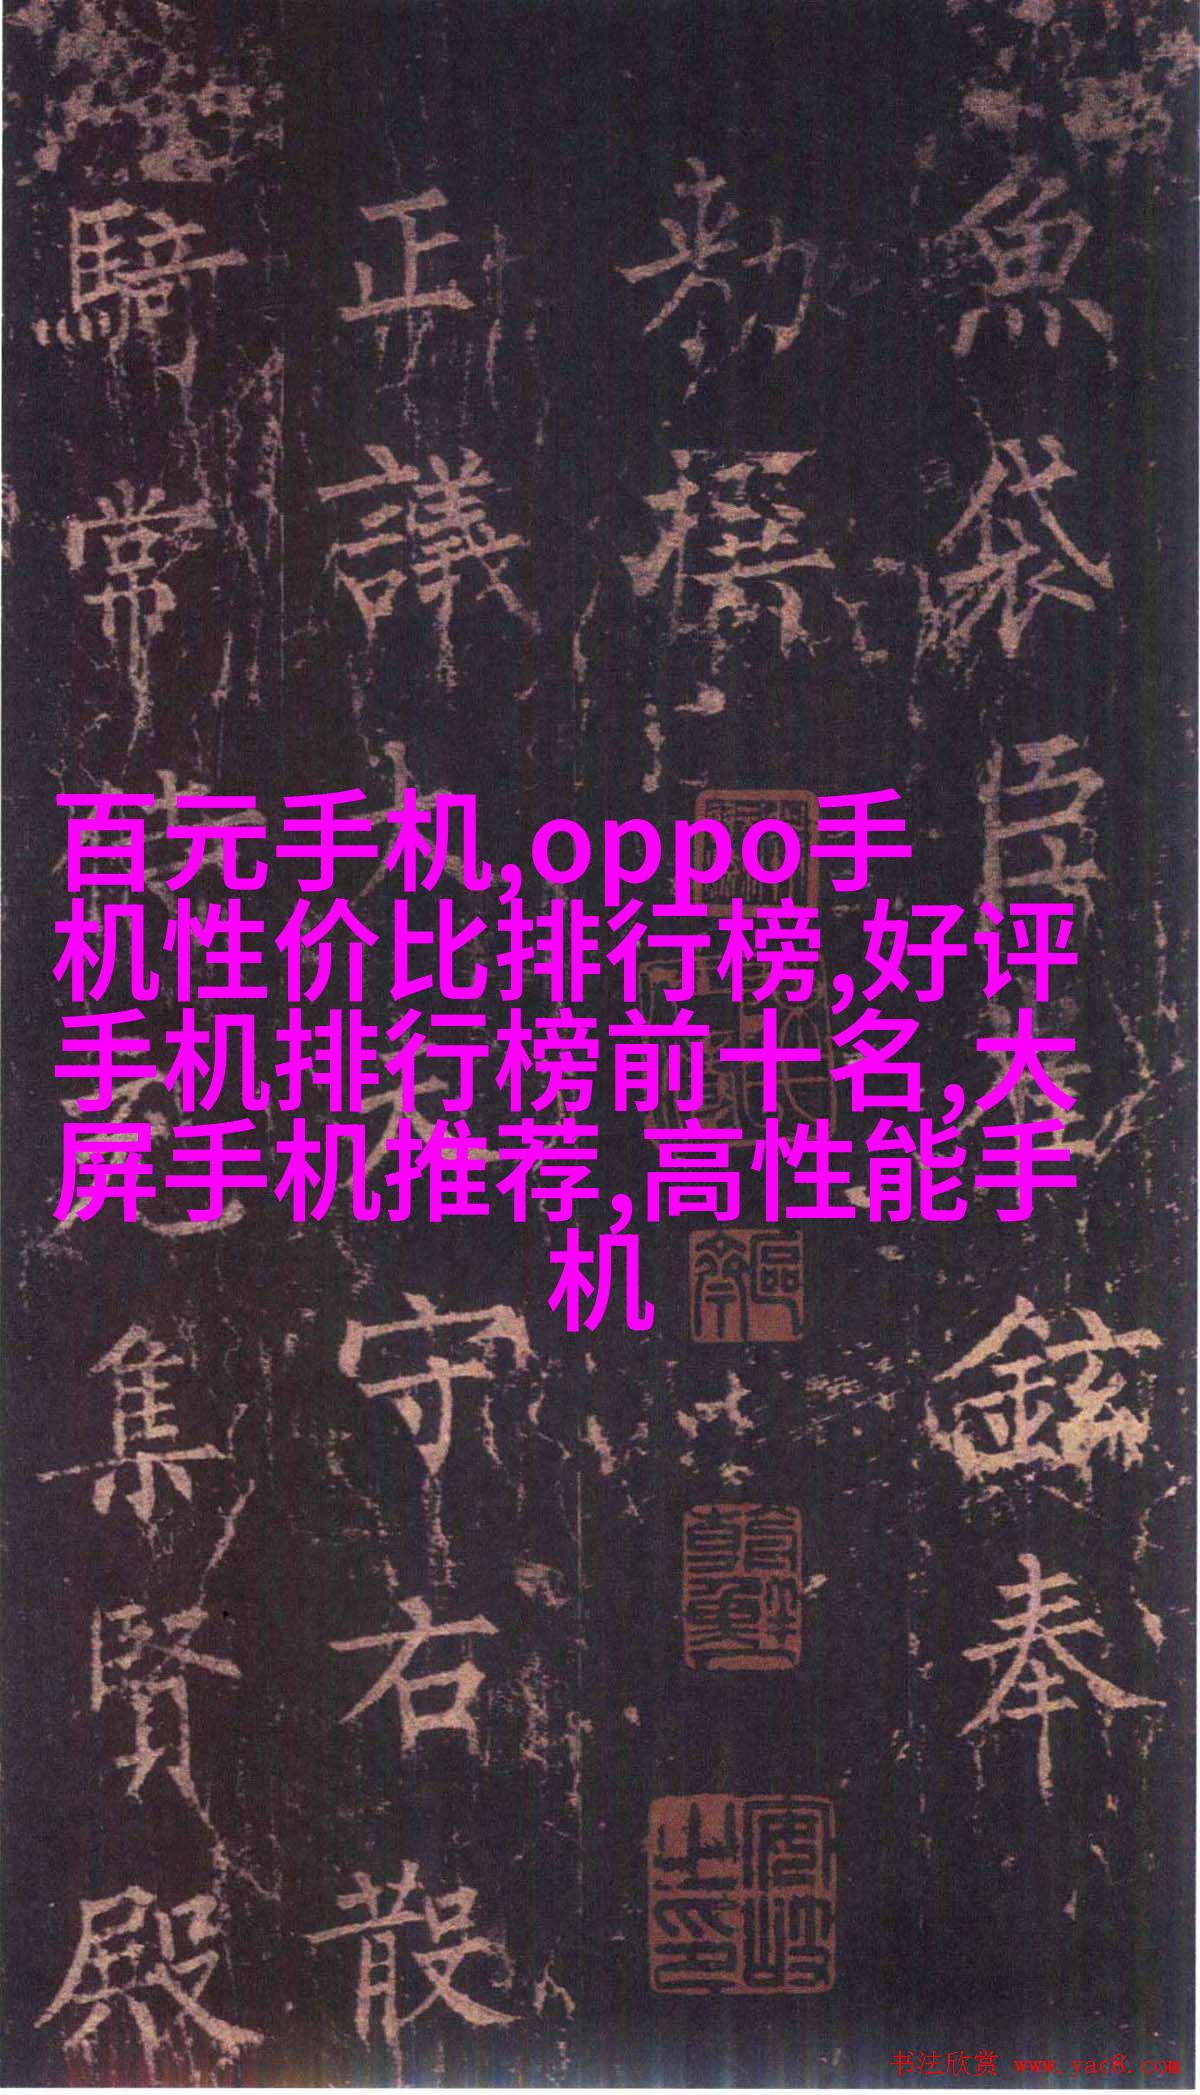 百元手机,oppo手
机性价比排行榜,好评
手机排行榜前十名,大
屏手机推荐,高性能手
机
魚袋臣崔鉉奉
勑撰
正議大夫守右散
騎常侍充集賢殿
书法欣赏 www.yac8.com